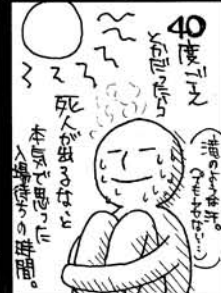 40度ごえ
とかだったら
死人が出るな、と
本気で思った
入場待ちの時間。
滝のような汗。